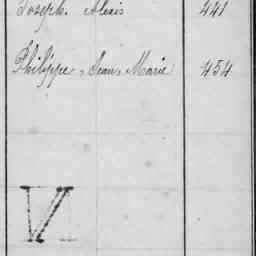 Joseph. Alexis 441
Philippe, Jean, Marie 454
V